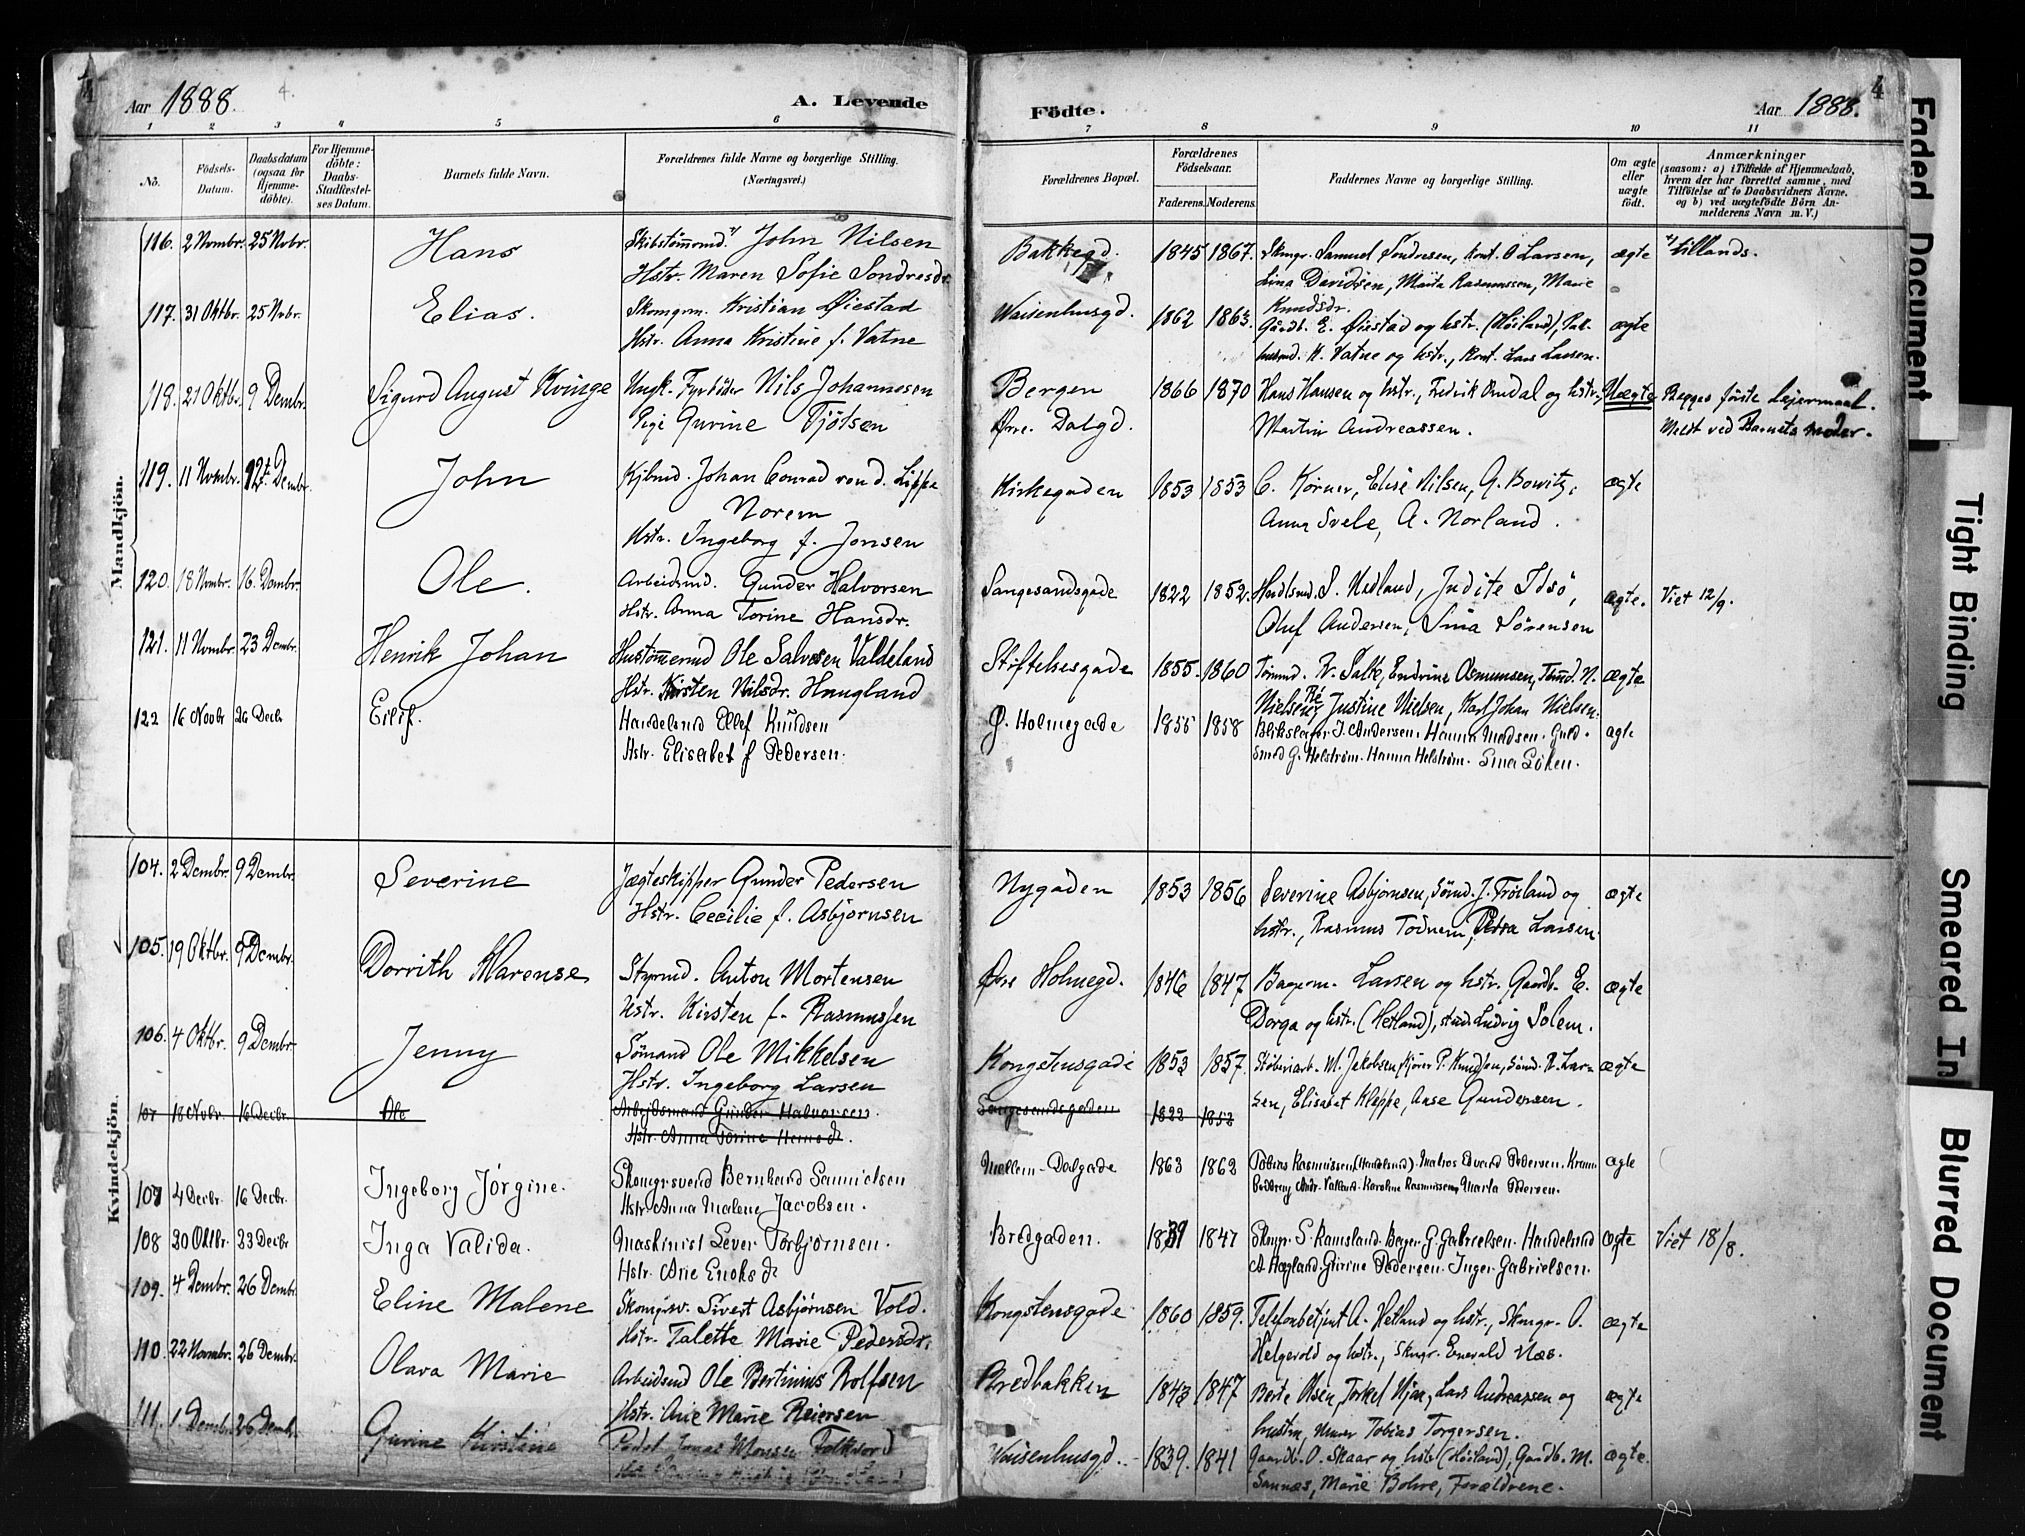 4
Aar 1888. 4.
A. Levende
Födte.
Aar 1888.
4
1 2 3 4 5 6 7 8 9 10 11
No.
Födsels-Datum.
Daabsdatum (ogsaa for Hjemme-döbte).
For Hjemme-döbte: Daabs-Stadfæstel-ses Datum.
Barnets fulde Navn.
Forældrenes fulde Navne og borgerlige Stilling. (Næringsvei.)
Forældrenes Bopæl.
Forældrenes Födselsaar.
Faderens. Moderens.
Faddernes Navne og borgerlige Stilling.
Om ægte eller uægte födt.
Anmærkninger
(saasom: a) i Tilfælde af Hjemmedaab, hvem der har forrettet samme, med Tilföielse af to Daabsvidners Navne. og b) ved uægtefödte Börn An-melderens Navn m. V.)
Mandkjön.
116. 2 Novmbr. 25 Nvbr. Hans Skibstömrmd. John Nilsen Bakkegd. 1845 1867. Skmgr. Samuel Sondresen, Kont. O Larsen, ægte tillands.
Hstr. Maren Sofie Sondresdr. Lina Davidsen, Marta Rasmussen, Marie
Knudsdr.
117. 31 Oktbr. 25 Nvbr. Elias. Skomgrm. Kristian Øiestad Waisenhusgd. 1862 1863. Gårdb. E. Øiestad og hstr. (Høiland), Pak- ægte
Hstr. Anna Kristine f. Vatne husmd. K. Vatne og hstr., Kont. Lars Larsen.
118. 21 Oktbr. 9 Dembr. Sigurd August Kvinge Ungk. Fyrbøder Nils Johannesen Bergen 1866 1870 Hans Hansen og hstr., Fredrik Omdal og hstr., Uægte Begges første Leiermaal.
Pige Gurine Tjötsen Øvre. Dalgd. Martin Andreassen. Meldt ved Barnets moder.
119. 11 Novmbr. 12. Dembr. John Kjbmd. Johan Conrad von d. Lippe Kirkegaden 1853 1853 C. Körner, Elise Nilsen, G. Bowitz, ægte
Norem Anna Svele, A. Norland.
Hstr. Ingeborg f. Jonsen
120. 18 Nvmbr. 16. Dembr. Ole. Arbeidsmd. Gunder Halvorsen Sangesandsgade 1822 1852. Hndlsmd. S. Nedland, Judite Idsö, ægte. Viet 12/9.
Hstr. Anna Torine Hansdr. Oluf Andersen, Sina Sörensen
121. 11 Novmbr. 23 Dembr. Henrik Johan Hustømermd Ole Salvesen Valdeland Stiftelsesgade 1855. 1860 Tømmd. V. Salte, Endrine Osmunsen, Tømmd. N. ægte
Hstr. Kirsten Nilsdr. Haugland Nielsen, Justine Nielsen, Karl Johan Nielsen.
122 16 Novbr 26 Decbr Eilif. Handelsmd Ellef Knudsen Ø. Holmegade 1855 1858 Blikslager J. Andersen. Hanna Madsen. Guld- ægte
Hstr. Elisabet f Pedersen. smed G. Helstrøm. Hanna Helstrøm. Sina Söken.
Kvindekjön.
104. 2 Dembr. 9 Dembr. Severine Jægteskipper Gunder Pedersen Nygaden 1853 1856 Severine Asbjornsen, Sömd. J. Tröiland og ægte
Hstr. Cecilie f. Asbjornsen hstr., Rasmus Todnem, Petra Larsen.
105. 19 Oktbr. 9 Dembr. Dorrith Marense Styrmd. Anton Mortensen Øvre Holmegd. 1846 1847 Bagerm. Larsen og hstr. Gaardb. E. ægte
Hstr. Kirsten f. Rasmussen Dorga og hstr. (Hetland), stud. Ludvig Solem.
106. 4 Oktbr. 9 Dembr. Jenny Sömand Ole Mikkelsen Kongstensgade 1853 1857. Støberiarb. M. Jakobsen, Kjører P. Knudsen, Sömd. R. Lar- ægte
Hstr. Ingeborg Larsen sen, Elisabet Kleppe, Anse Gundersen.
107 18 Novbr. 16 Decbr. Ole Arbeidsmand Gunder Halvorsen. Sangesandsgaden 1822 1852
Hstr. Anna Torine Hansdr.
107 4 Decbr. 16 Decbr. Ingeborg Jørgine. Skomgrsvend Bernhard Samuelsen Mellem-Dalgade 1863 1862 Tobias Rasmussen (Handelsmd). Matros Edvard Pedersen. ægte
Hstr. Anna Malene Jacobsen. Karoline Rasmussen, Marta Pedersen.
108 30 Oktbr. 23 Decbr Inga Valida. Maskinist Sever Torbjørnsen. Bredgaden. 1839 1847 Skmgr. S. Ramsland. Bager. G. Gabrielsen. Handelsmd ægte Viet 18/8.
Hstr. Ane Enoksdr A. Hægland. Gurine Pedersen. Inger Gabrielsen.
109. 4 Dembr. 26 Dembr. Eline Malene Skomgrsv. Sivert Asbjørnsen Vold. Kongstensgade 1860 1859. Telefonbetjent A. Hetland og hstr., Skmgr. O. ægte
Hstr. Talette Marie Pedersdr. Helgevold og hstr., Skmgr. Enevald Næs.
110. 22 Novmbr. 26 Dembr. Olava Marie Arbeidsmd Ole Bertinius Rolfsen Bredbakken 1843 1847 Berte Olsen, Torkel Hjan, Lars Andreassen og ægte
Hstr. Ane Marie Reiersen hustru, Murer Tobias Torgersen.
111. 1. Dembr. 26 Dembr. Gurine Kirstine Jonas Monsen Folkvord Waisenhusgd. 1839. 1841 Gaardb. O. Skaar og hstr (Høiland), Gaardb. M. ægte.
Sannæs, Marie Bohre, Forældrene.
Faded Document
Tight Binding
Smeared In
Blurred Document